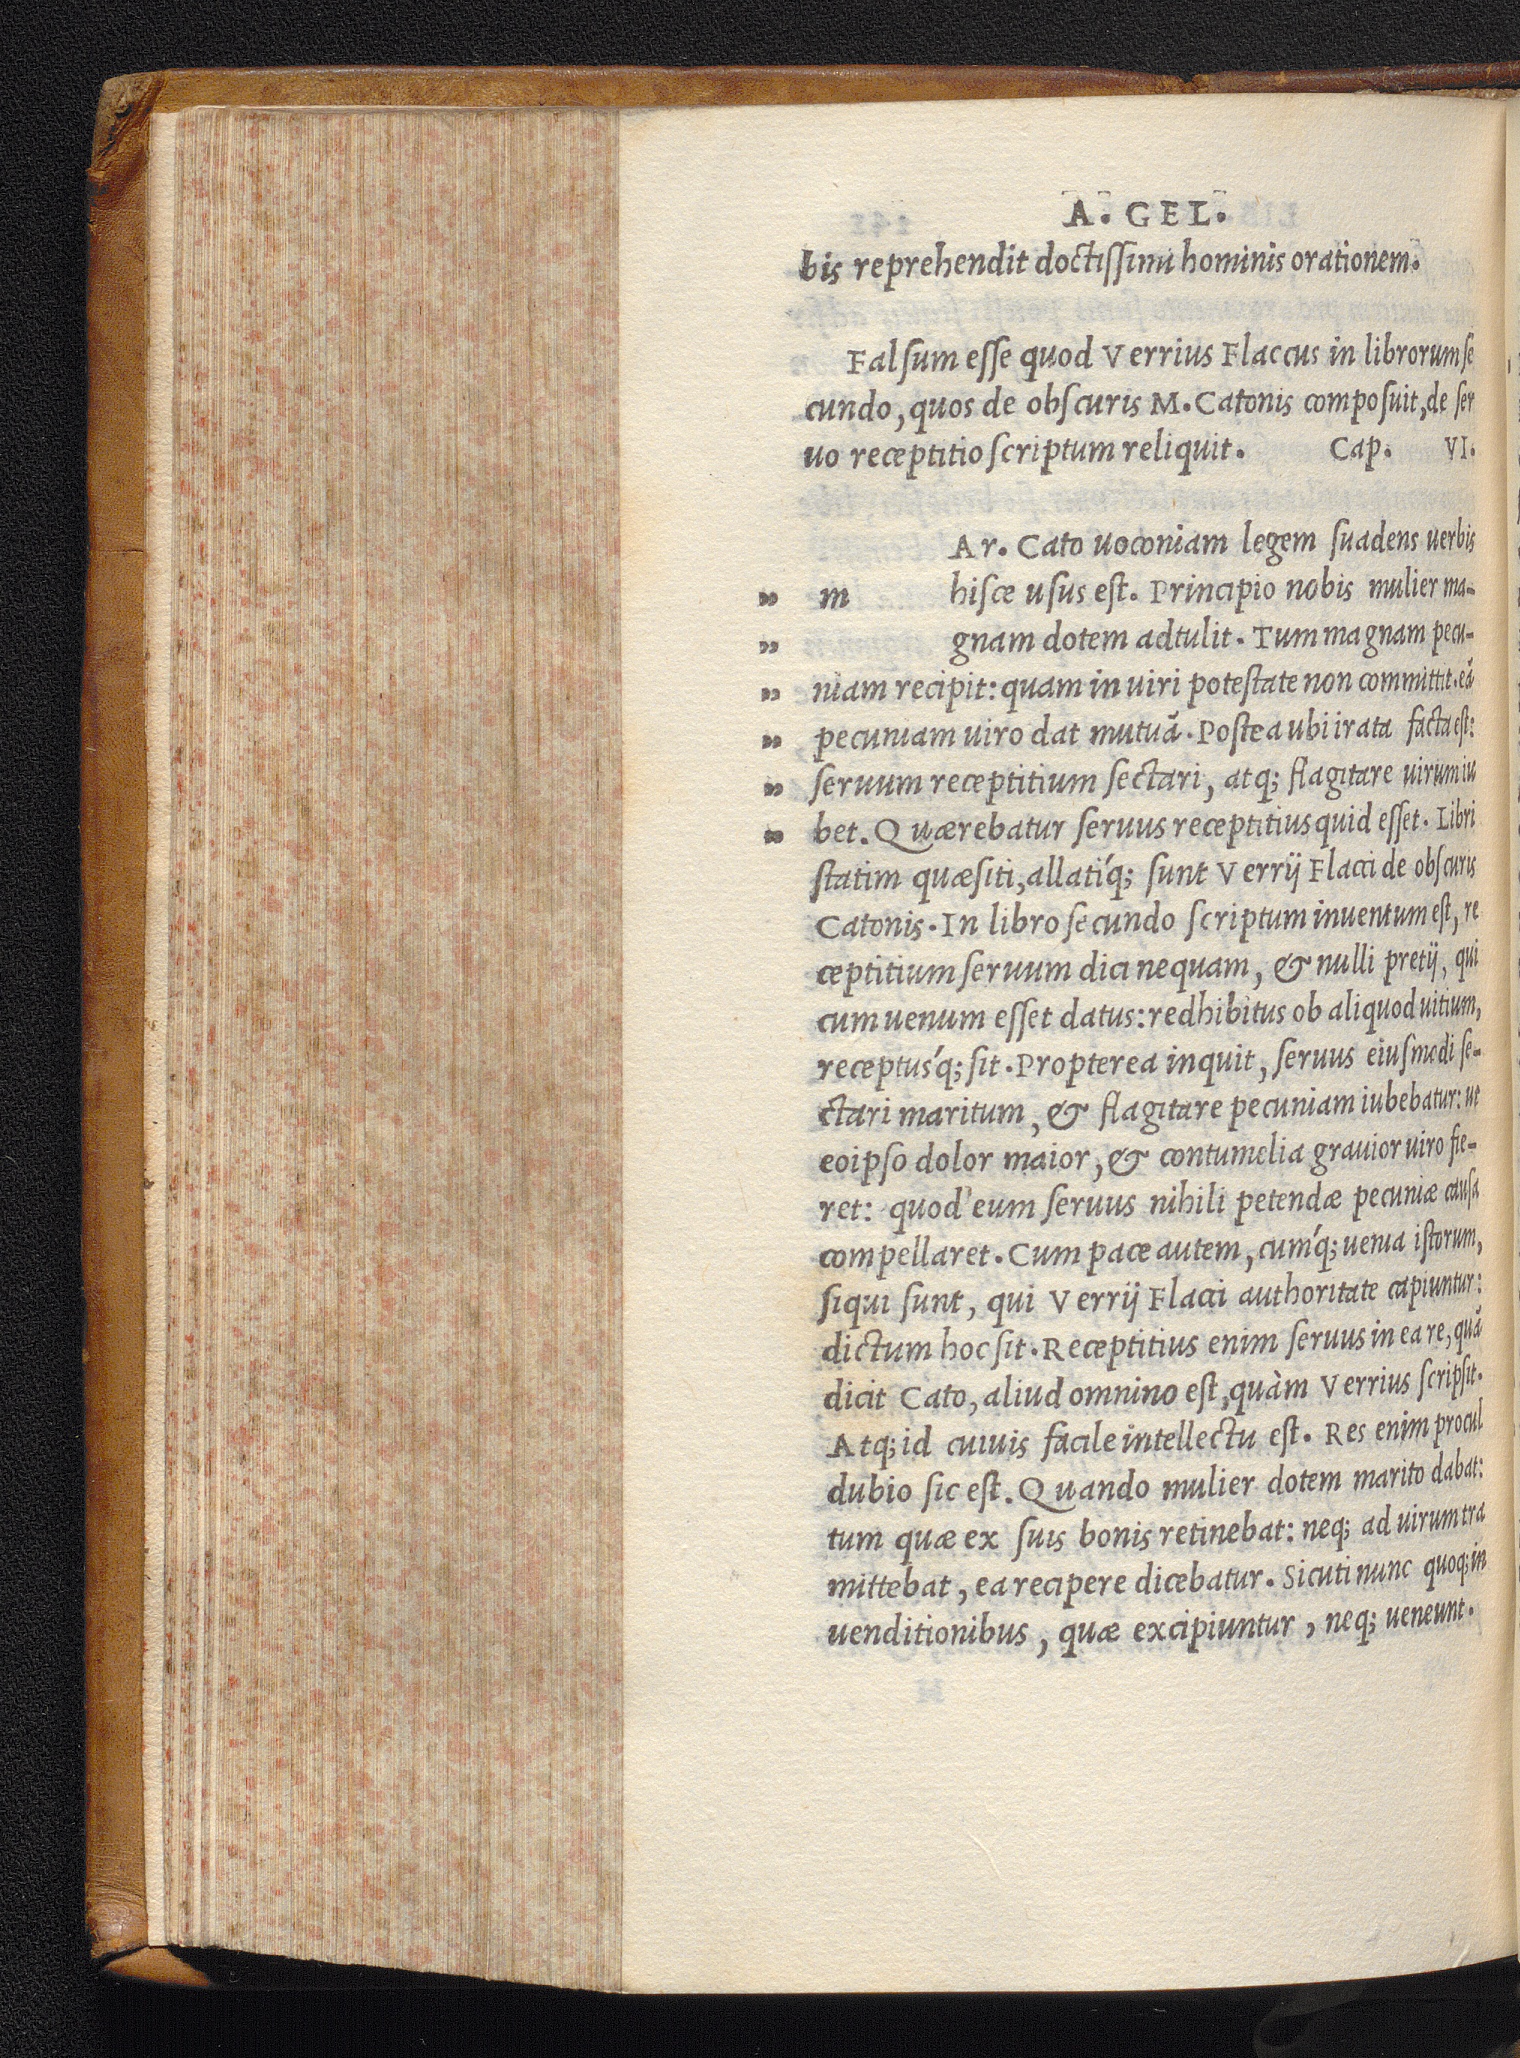 A. GEL.
bis reprehendit doctissimi hominis orationem.
Falsum esse quod Verrius Flaccus in librorum se
cundo, quos de obscuris M. Catonis composuit, de ser
uo receptitio scriptum reliquit. Cap. VI.
Ar. Cato uoconiam legem suadens uerbis
” m hisce usus est. Principio nobis mulier ma-
” gnam dotem adtulit. Tum magnam pecu-
” niam recipit: quam in uiri potestate non committit. eā
” pecuniam uiro dat mutuā. Postea ubi irata facta est:
” seruum receptitium sectari, atq; flagitare uirum iu
” bet. Quærebatur seruus receptitius quid esset. Libri
statim quæsiti, allatíq; sunt Verrij Flacci de obscuris
Catonis. In libro secundo scriptum inuentum est, re
ceptitium seruum dici nequam, & nulli pretij, qui
cum uenum esset datus: redhibitus ob aliquod uitium,
receptusq́; sit. Propterea inquit, seruus eiusmodi se-
ctari maritum, & flagitare pecuniam iubebatur: ut
eoipso dolor maior, & contumelia grauior uiro fie-
ret: quod eum seruus nihili petendæ pecuniæ causa
compellaret. Cum pace autem, cumq́; uenia istorum,
siqui sunt, qui Verrij Flacci authoritate capiuntur:
dictum hoc sit. Receptitius enim seruus in ea re, quā
dicit Cato, aliud omnino est, quàm Verrius scripsit.
Atq; id cuiuis facile intellectu est. Res enim procul
dubio sic est. Quando mulier dotem marito dabat:
tum quæ ex suis bonis retinebat: neq; ad uirum tra
mittebat, ea recipere dicebatur. Sicuti nunc quoq; in
uenditionibus, quæ excipiuntur, neq; ueneunt.